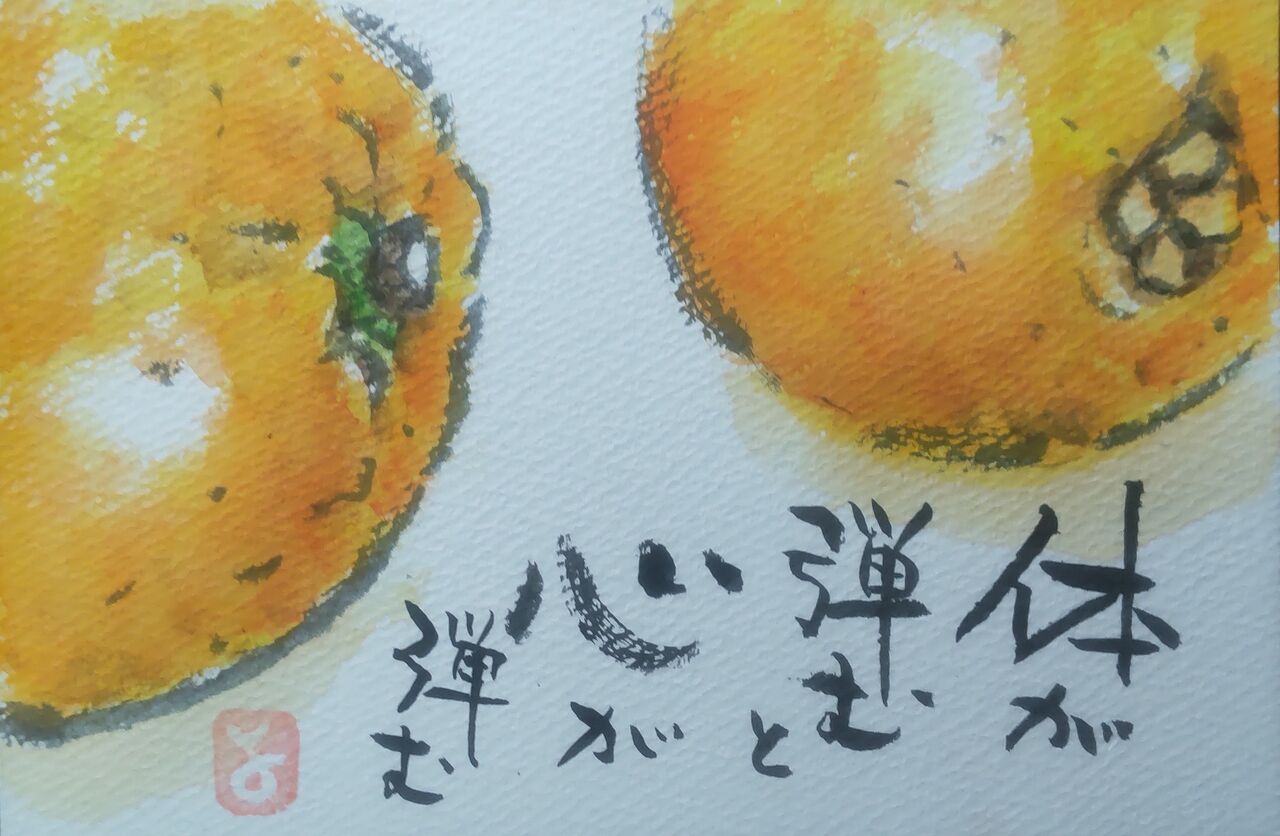 体が
弾む
と
心が
弾む